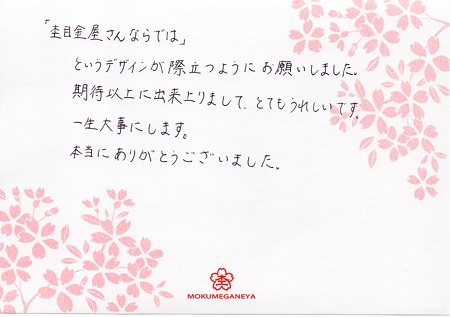 「杢目金屋さんならでは」
というデザインが際立つようにお願いしました。
期待以上に出来上りまして、とてもうれしいです。
一生大事にします。
本当にありがとうございました。
杢
MOKUMEGANEYA